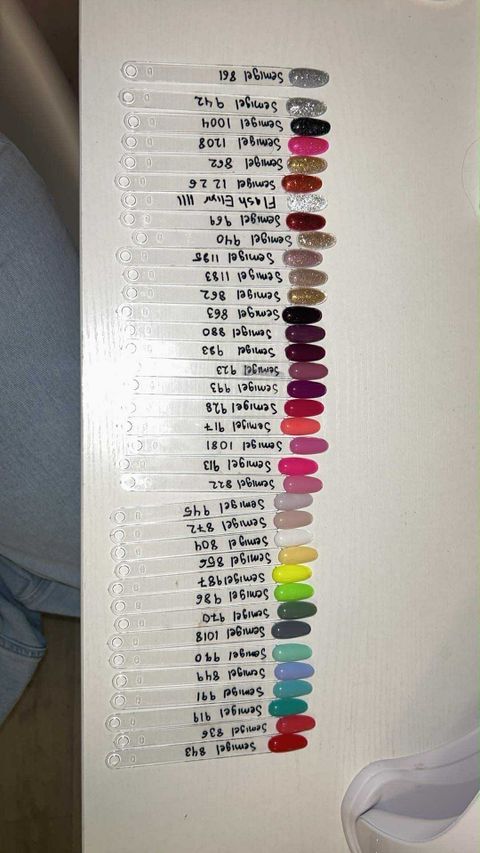 Semigel 843
Semigel 836
Semigel 919
Semigel 991
Semigel 849
Semigel 990
Semigel 1018
Semigel 970
Semigel 986
Semigel 987
Semigel 856
Semigel 804
Semigel 872
Semigel 945
Semigel 822
Semigel 913
Semigel 1081
Semigel 917
Semigel 928
Semigel 993
Semigel 923
Semigel
Semigel 880
Semigel 863
Semigel 862
Semigel 1183
Semigel 1195
Semigel 940
Semigel 969
Flash
Semigel 1226
Semigel 862
Semigel 1208
Semigel 1004
Semigel 942
Semigel 861